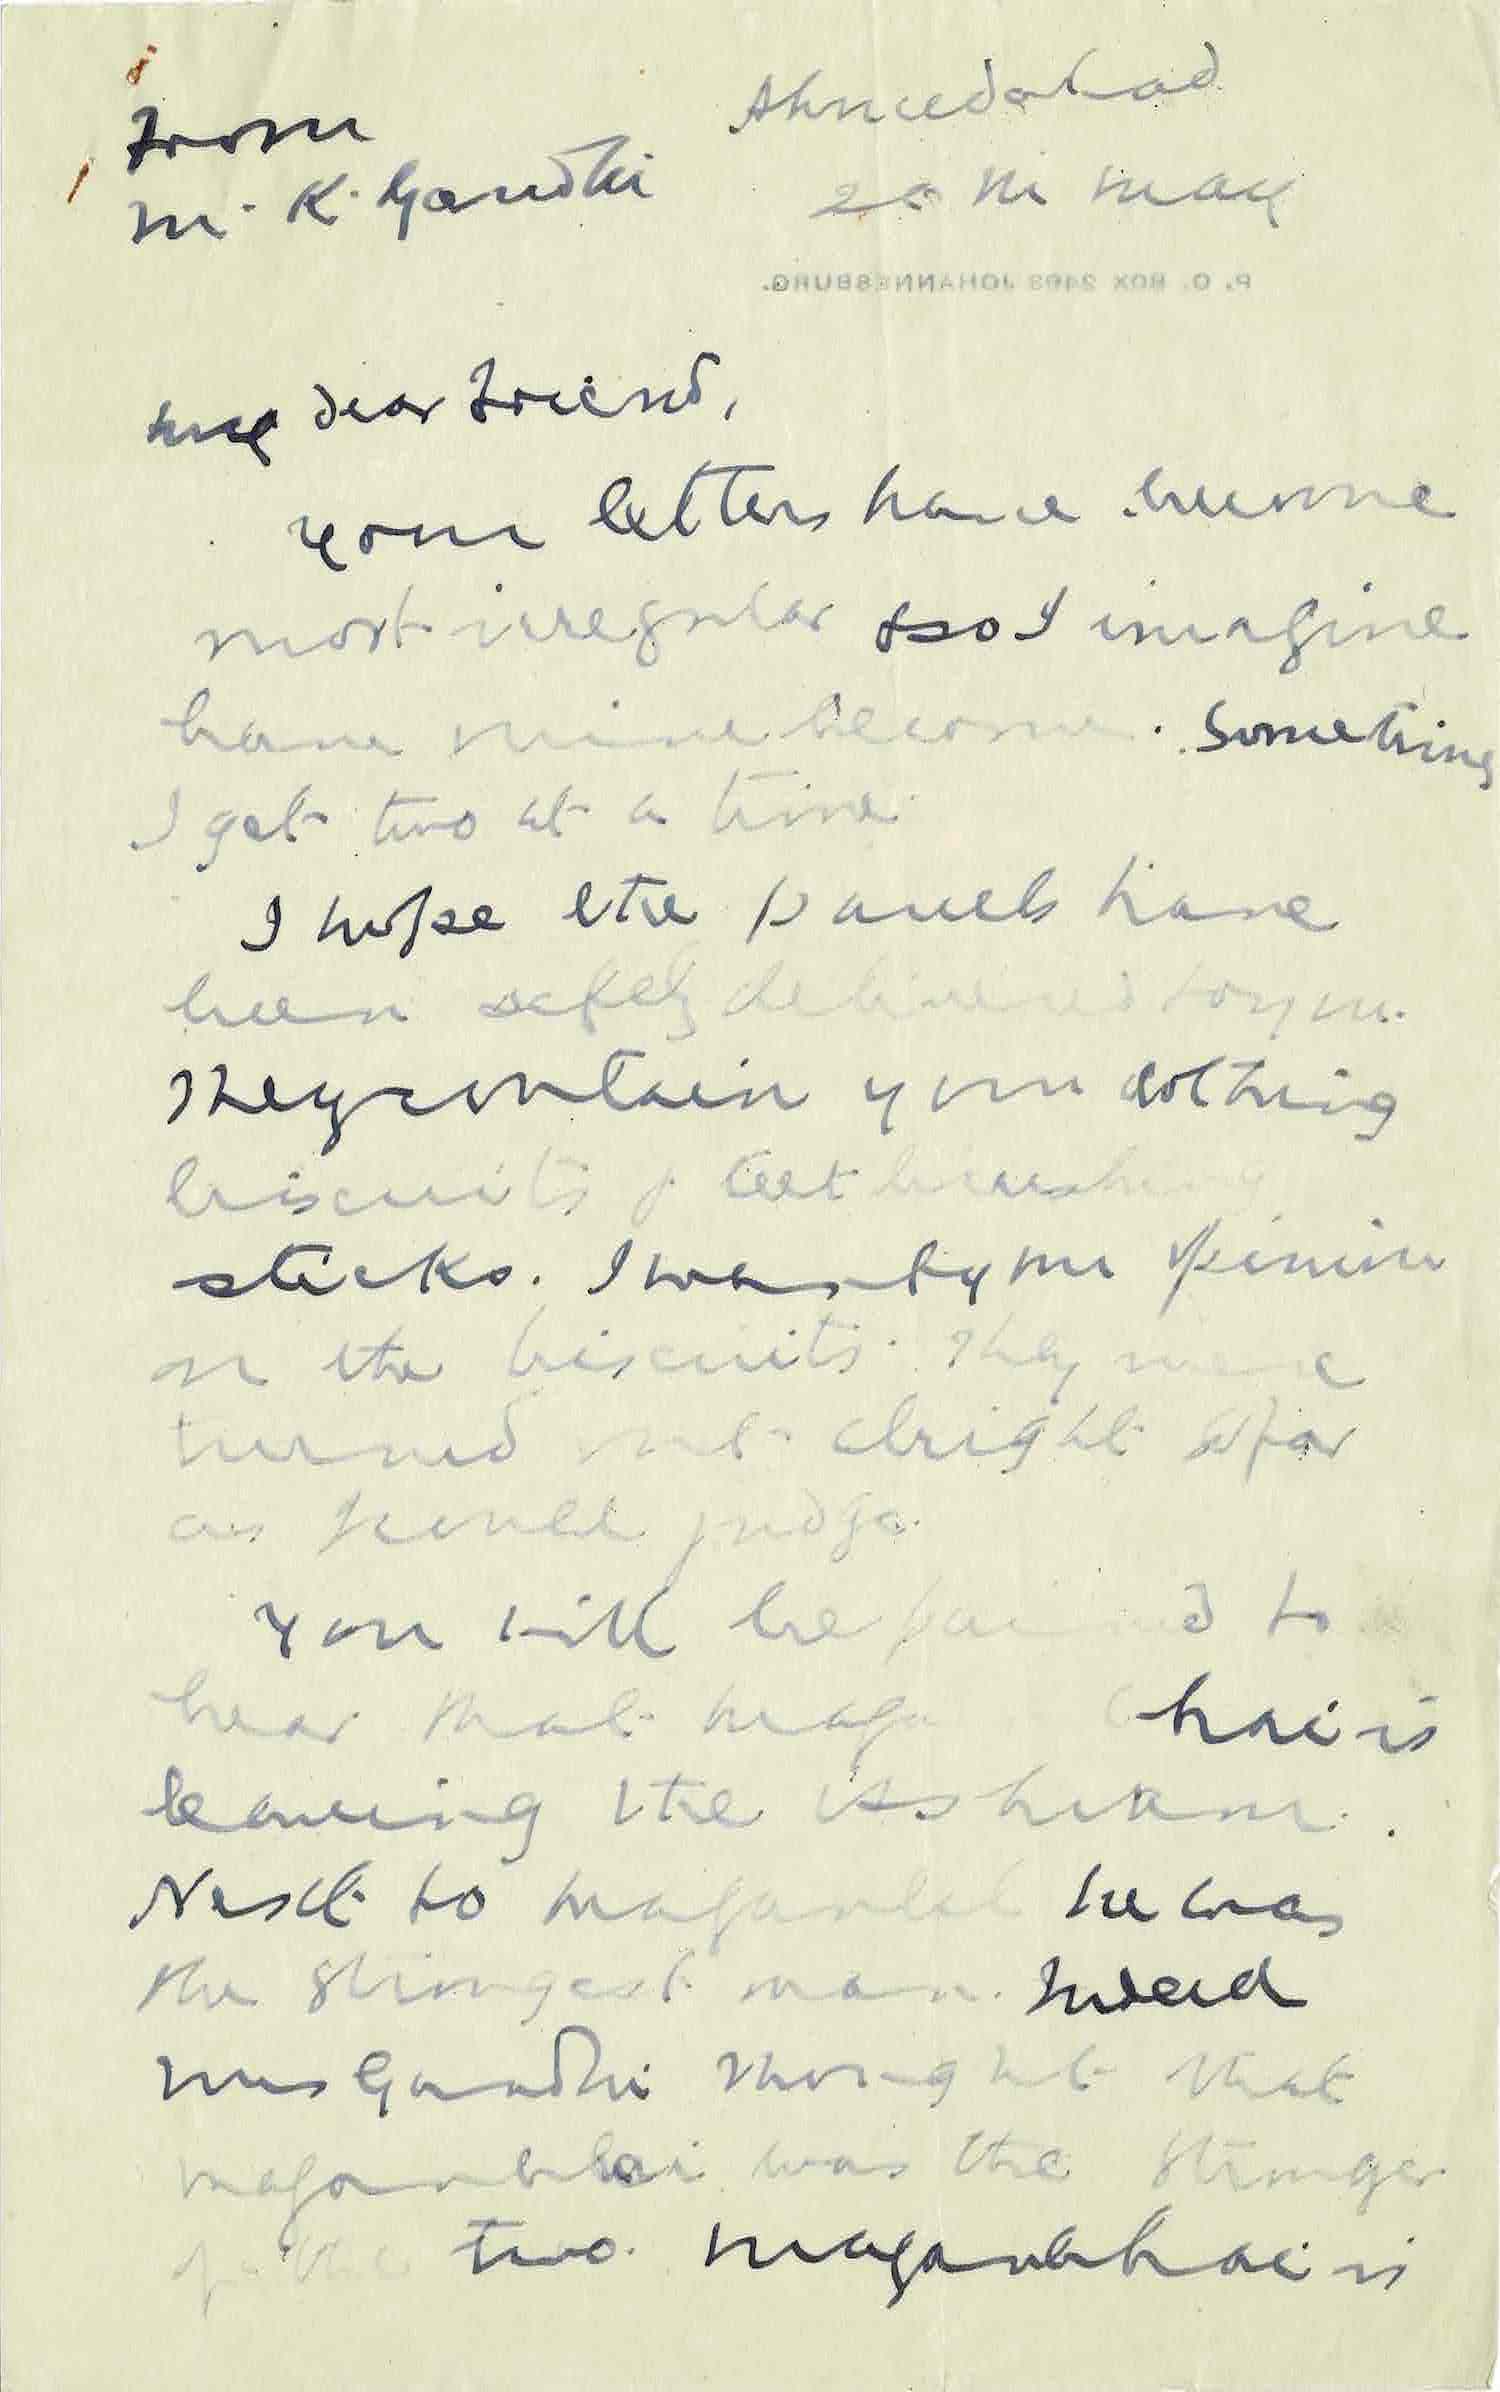 From
M. K. Gandhi
Ahmedabad
20th May
P. O. BOX 2493 JOHANNESBURG.
My dear friend,
Your letters have become
most irregular so I imagine
have mine become. Something
I get two at a time.
I hope the parcels have
been safely delivered to you.
They contain your clothing
biscuits & teeth brushing
sticks. I want your opinion
on the biscuits. They were
turned out alright so far
as I could judge.
You will be pained to
hear that Maganbhai is
leaving the Ashram.
Next to Maganlal he was
the strongest man. Indeed
Mrs Gandhi thought that
Maganbhai was the stronger
of the two. Maganbhai is